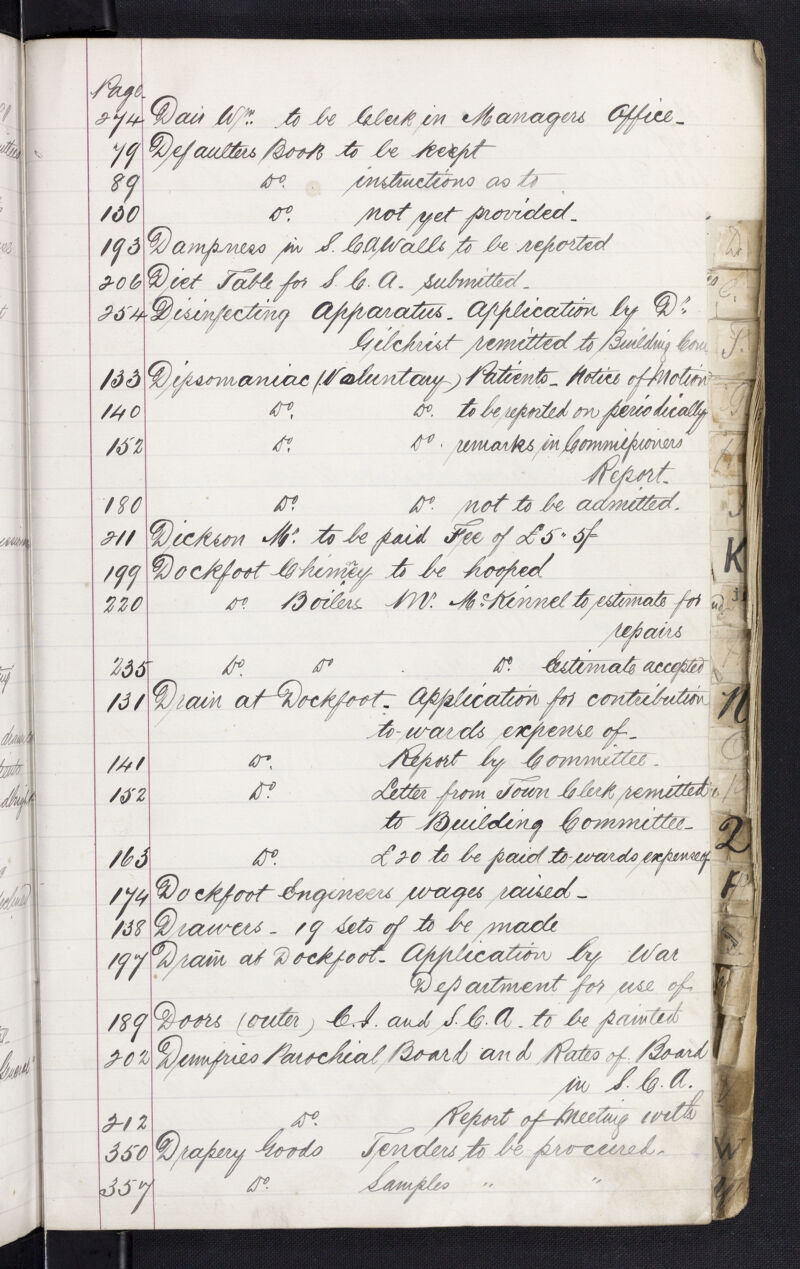 Page
274 Dair Wm. to be Clerk in Managers Office-
79 Defaulters Book to be keept
89 Do. instructions as to
130 Do. not yet provided-
193 Dampness in S.C.A Walls to be reported
206 Diet Table for S.C.A. submitted-
254 Disinfecting Apparatus- Application by Dr.
Gilchrist remitted to Building Com
133 Dipsomaniac (Voluntary) Patients- Notice of Motion
140 Do. Do. to be reported on periodically
152 Do. Do. remarks in Commissioners
Report-
180 Do. Do. not to be admitted.
211 Dickson Mr. to be paid Fee of £5"5/-
199 Dockfoot Chimney to be hooped
220 Do. Boilers Mr. McKinnel to estimate for
repairs
235 Do. Do Do. Estimate accepted
131 Drain at Dockfoot- Application for contribution
to-wards expense of-
141 Do. Report by Committee-
152 Do. Letter from Town Clerk remitted
to Building Committee-
163 Do. £20 to be paid to-wards expense of
174 Dockfoot Engineers wages raised-
138 Drawers- 19 sets of to be made
197 Drain at Dockfoot- Application by War
Department for use of
189 Doors (outer) C.I. and S.C.A. to be painted
202 Dumfries Parochial Board and Rates of Board
in S.C.A.
212 Do. Report of Meeting with
350 Drapery Goods Tenders to be procured-
357 Do. Samples " "
D
E.
F.
G
H
J
K
N
O
P
W